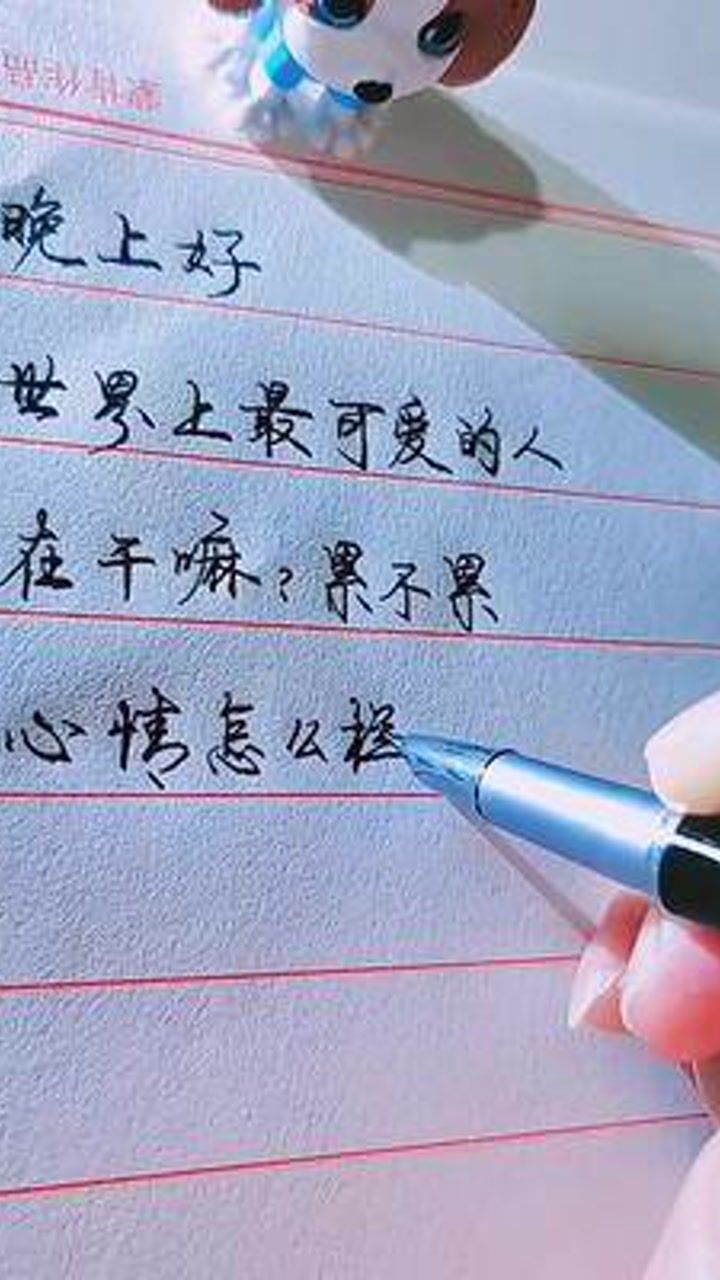 晚上好
世界上最可爱的人
在干嘛？累不累
心情怎么样